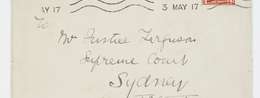 AY 17 3 MAY 17
To
Mr Justice Ferguson
Supreme Court
Sydney